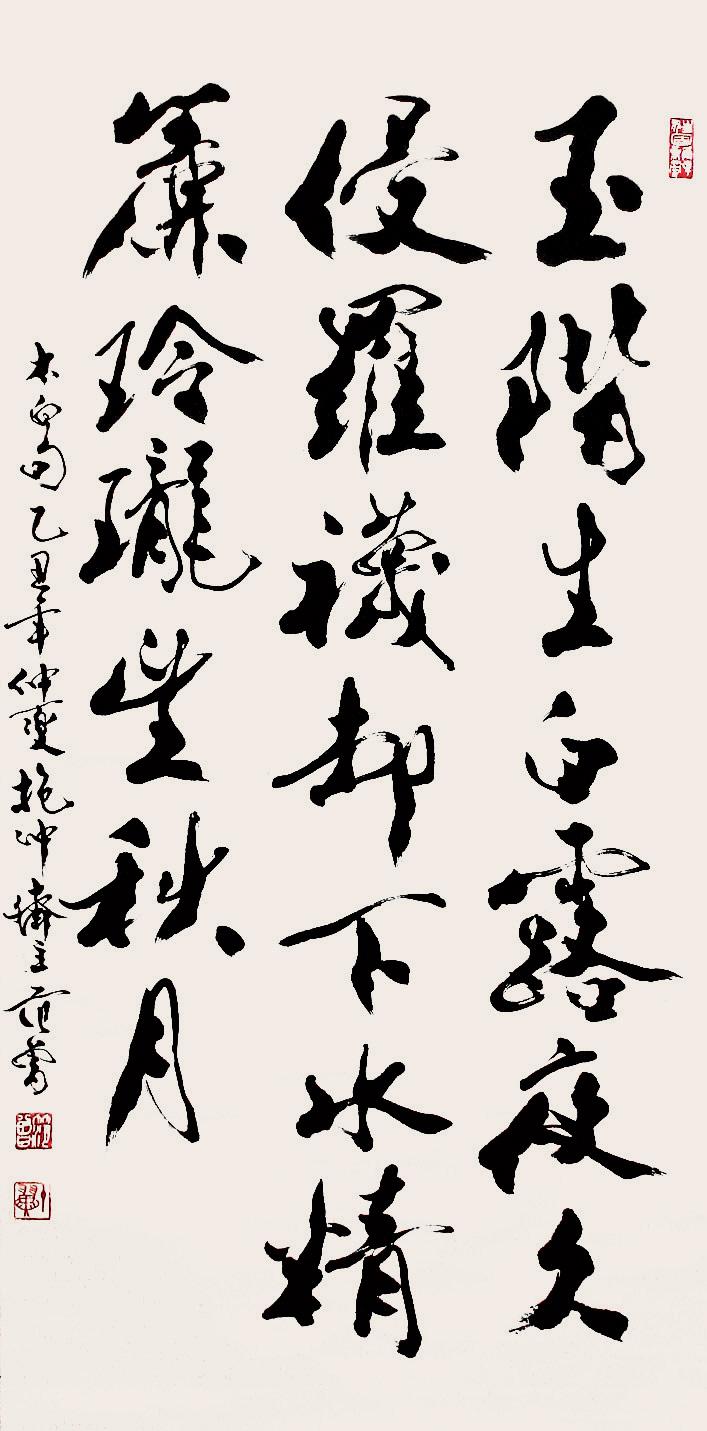 玉階生白露夜久
侵羅襪却下水精
簾玲瓏望秋月
太白句乙丑年仲夏抱冲齋主范曾